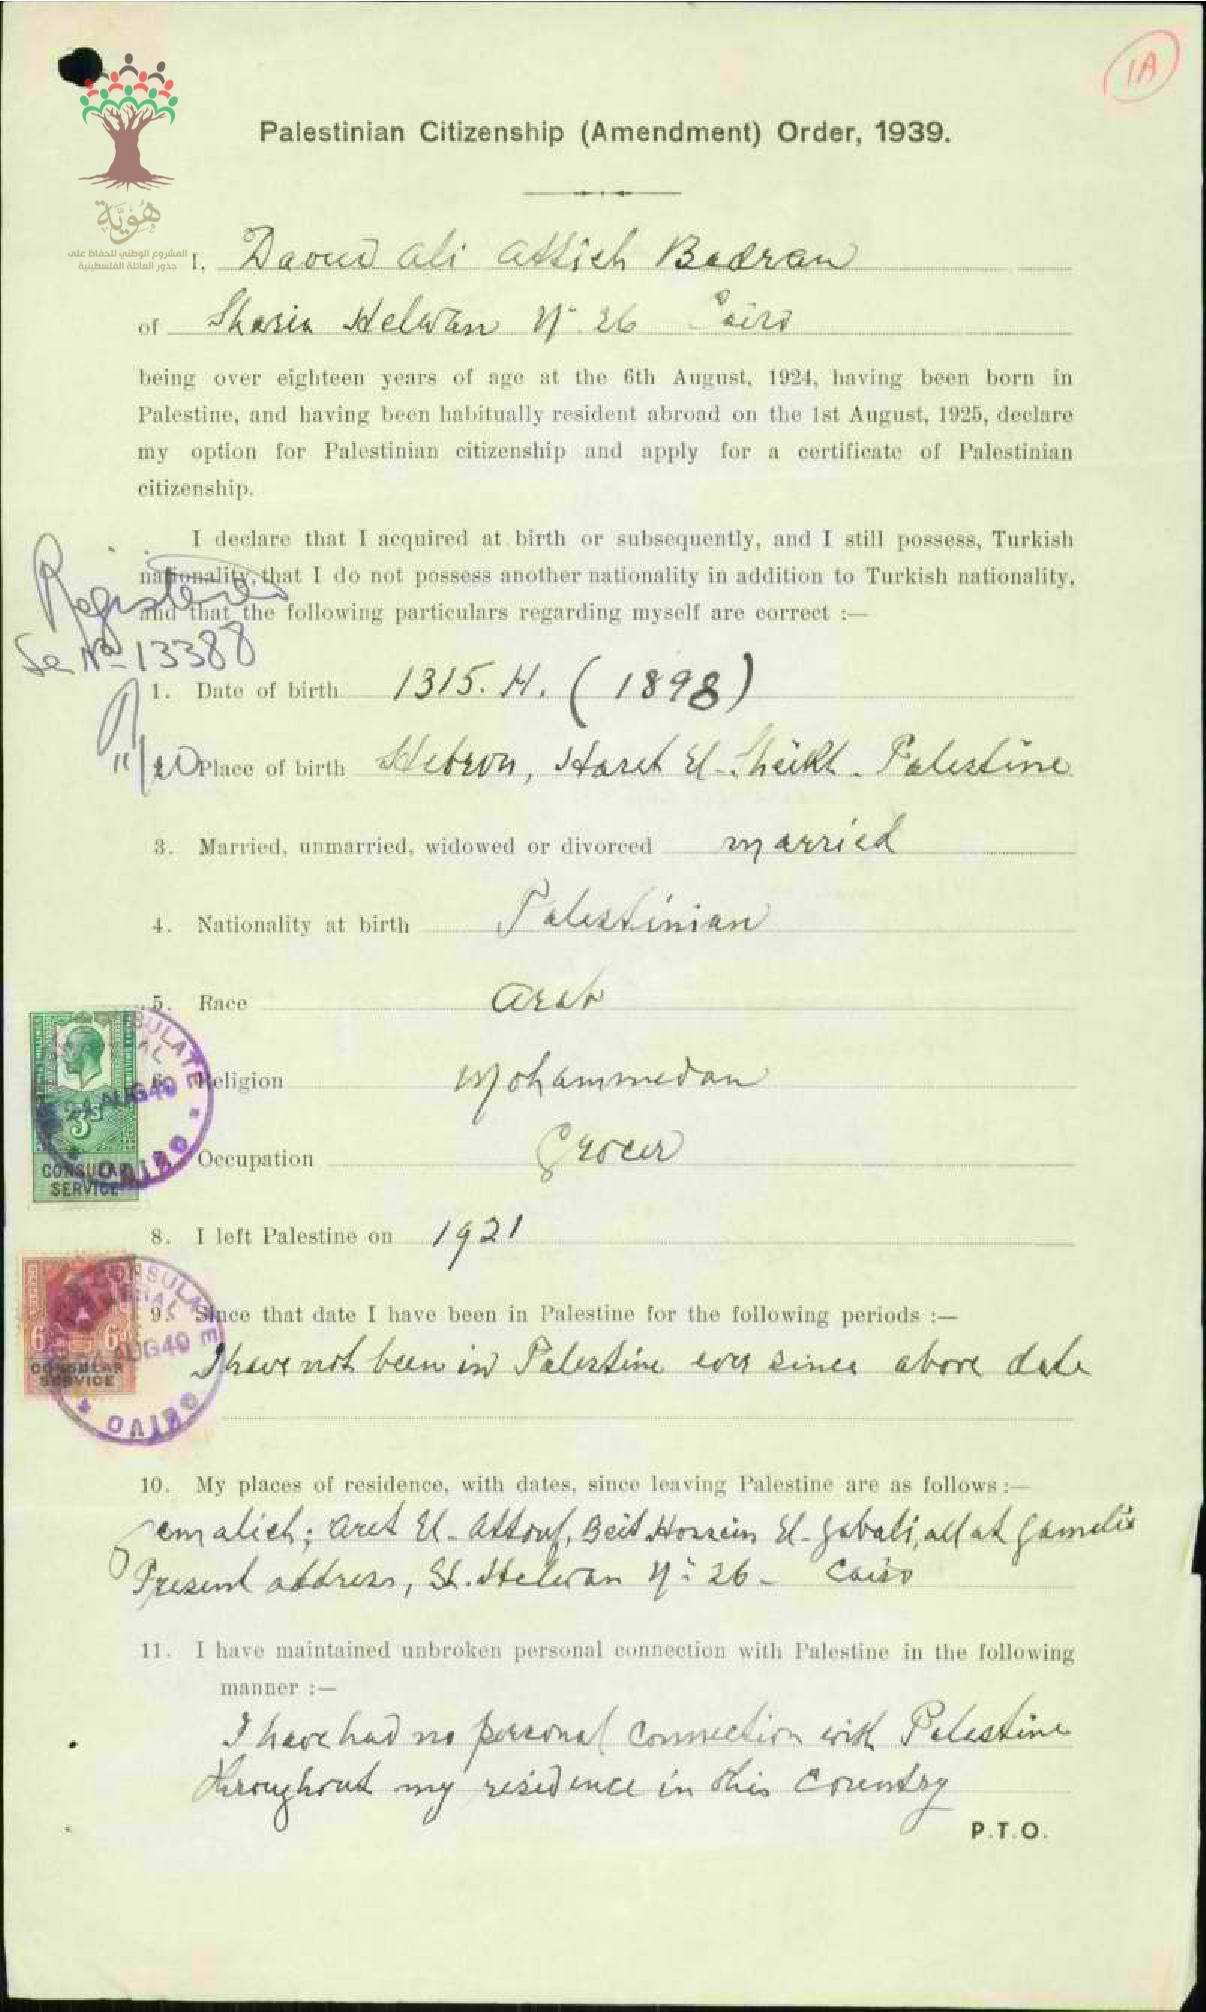 1A
Palestinian Citizenship (Amendment) Order, 1939.
هُوِيَّة
المشروع الوطني للحفاظ على
جذور العائلة الفلسطينية
I, Daoud Ali Attieh Badran
of Sharia Helwan N° 26 Cairo
being over eighteen years of age at the 6th August, 1924, having been born in
Palestine, and having been habitually resident abroad on the 1st August, 1925, declare
my option for Palestinian citizenship and apply for a certificate of Palestinian
citizenship.
I declare that I acquired at birth or subsequently, and I still possess, Turkish
nationality, that I do not possess another nationality in addition to Turkish nationality,
and that the following particulars regarding myself are correct :—
Registered
Se No 13388
1. Date of birth 1315. H. (1898)
11/20
Place of birth Hebron, Haret El-Sheikh. Palestine
3. Married, unmarried, widowed or divorced married
4. Nationality at birth Palestinian
5. Race Arab
Religion Mohammedan
Occupation Grocer
CONSULATE
AUG 40
CAIRO
CONSULAR
SERVICE
8. I left Palestine on 1921
9. Since that date I have been in Palestine for the following periods :—
I have not been in Palestine ever since above date
CONSULATE
AUG 40
6d 6d
CONSULAR
SERVICE
CAIRO
10. My places of residence, with dates, since leaving Palestine are as follows :—
Gemalieh; Aret El-Attouf, Beit Hossein El-Gabali, all at Gamelia
Present address, St. Helwan N° 26 - Cairo
11. I have maintained unbroken personal connection with Palestine in the following
manner :—
I have had no personal connection with Palestine
throughout my residence in this country
P.T.O.